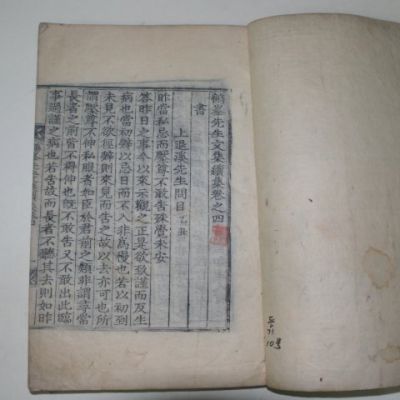 鶴峯先生文集續集卷之四
書
上退溪先生問目 乙丑
昨當私忌而厭尊不敢告殊覺未安
答昨日之事今以來示觀之正是欲致謹而反生
病也當初辭以忌日而不入非爲慢也若以初到
未見不欲徑辭則來見而告之故以去亦可也所
謂厭尊不伸私服者如臣於君前之類非謂尋常
長者之前皆不得伸不敢告又不敢出此臨
事過謹之病也若告故而長者不聽其去則如昨